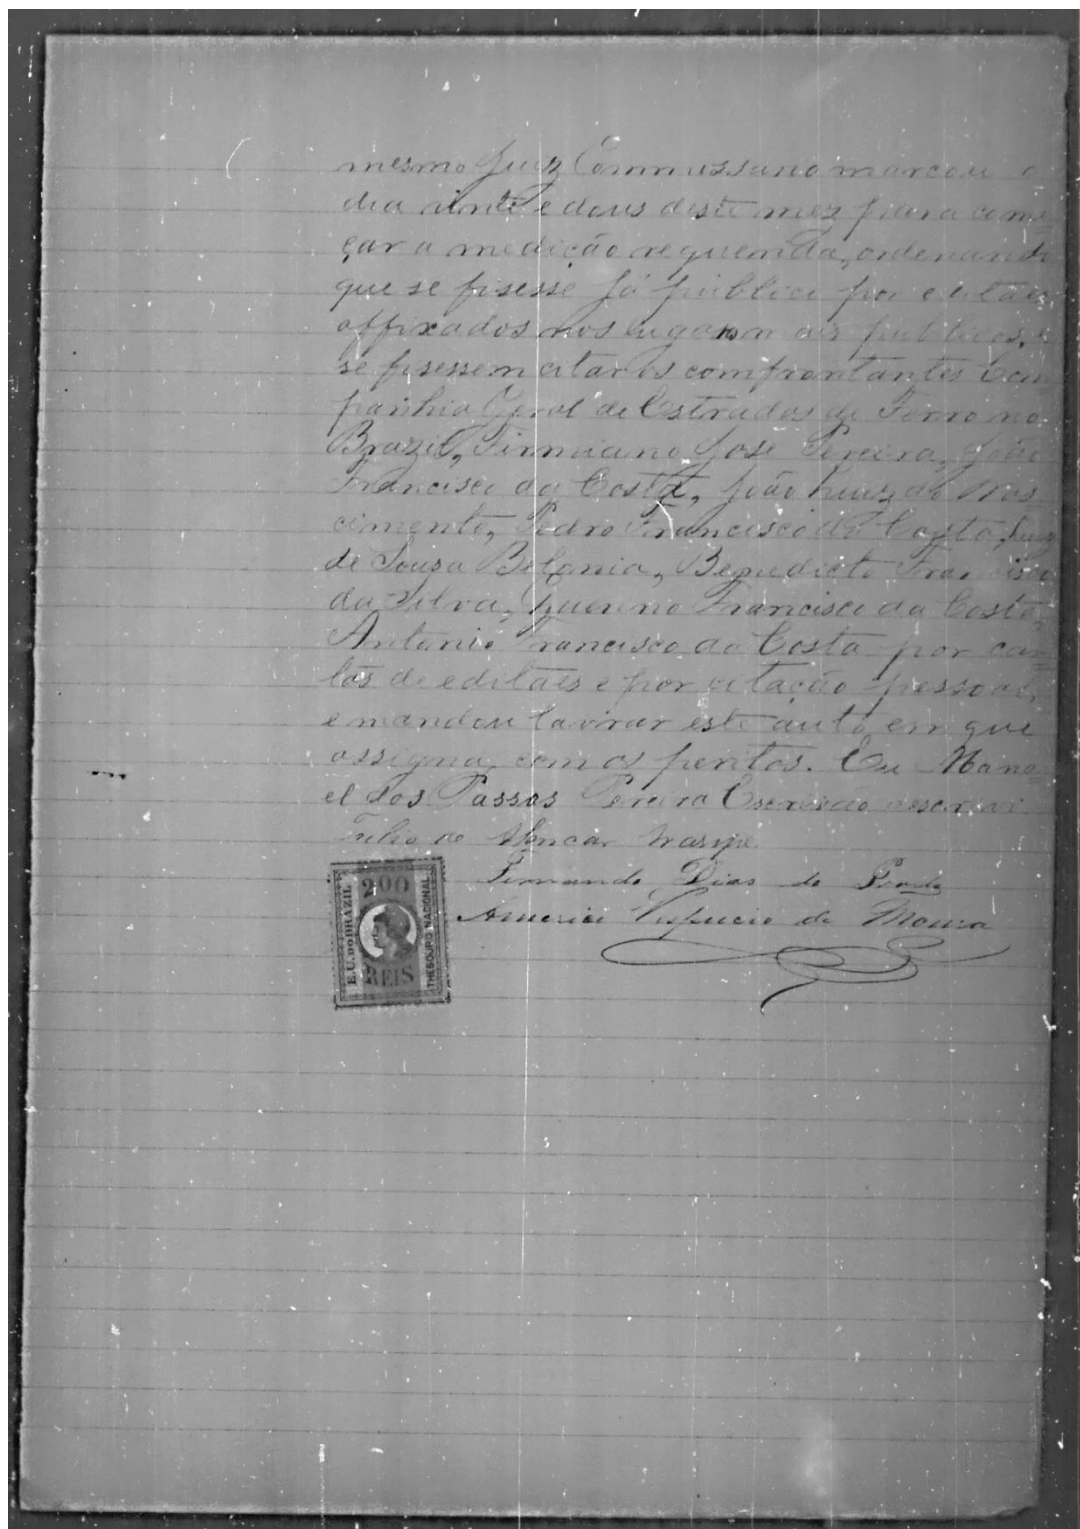 mesmo Juiz Commissario marcou o
dia vinte e dous deste mez para come-
çar a medição requerida, ordenando
que se fisesse já publico por editaes
affixados nos lugares mais publicos, e
se fisessem citar os comfrontantes Com-
panhia Geral de Estradas de Ferro no
Brazil, Firmiano José Pereira, João
Francisco da Costa, João Luiz do Nas-
cimento, Pedro Francisco da Costa, Luiz
de Sousa Belfonia, Benedicto Francisco
da Silva, Querino Francisco da Costa,
Antonio Francisco da Costa por car-
tas de editaes e por citação pessoal,
e mandou lavrar este auto em que
assigna com os peritos. Eu Mano-
el dos Passos Pereira Escrivão o escrevi
Tulio de Alencar
Fernando Dias de
Americo Vespucio de Moura
E.U. DO BRAZIL
200
REIS
THESOURO NACIONAL